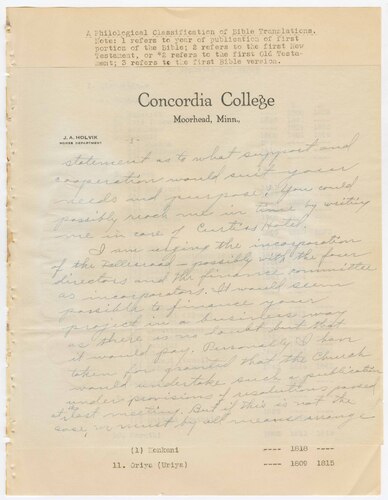 A Philological Classification of Bible Translations.
Note: 1 refers to year of publication of first
portion of the Bible; 2 refers to the first New
Testament, or *2 refers to the first Old Testa-
ment; 3 refers to the first Bible version.
Concordia College
Moorhead, Minn.,
J. A. HOLVIK
NORSE DEPARTMENT
statement as to what support and
cooperation would suit your
needs and purpose? You could
possibly reach me in time by writing
me in care of Curtiss Hotel.
I am urging the incorporation
of the possibly with the four
directors and the finance committee
as incorporators. It would seem
possible to finance your
project in a business way
as there is no doubt but that
it would pay. Personally I have
taken for granted that the Church
would undertake such a publication
under provisions of resolutions passed
at the last meeting. But if this is not the
case, we must by all means arrange
(1) Konkani ---- 1818 ----
11. Oriya (Uriya) ---- 1809 1815